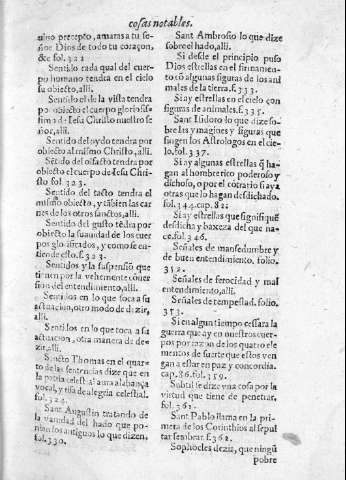 cosas notables.
uino precepto, amaras a tu se-
ñor Dios de todo tu coraçon,
&c fol. 322
Sentido cada qual del cuer
po humano tendra en el cielo
su obiecto, alli.
Sentido el de la vista tendra
por obiecto el cuerpo glorioſiſ-
simo de Iesu Christo nuestro se
ñor, alli.
Sentido del oydo tendra por
obiecto al mismo Christo, alli.
Sẽtido del olfacto tendra por
obiecto el cuerpo de Iesu Chri-
sto fol. 323.
Sentido del tacto tendra el
mismo obiecto, y tãbien las car
nes de los otros sanctos, alli.
Sentido del gusto tẽdra por
obiecto la suauidad de los cuer
pos glorificados, y como se en-
tiende esto. f. 323.
Sentidos y la suspensiõ que
tienen por la vehemente cõuer
sion del entendimiento, alli.
Sentidos en lo que toca a su
actuacion, otro modo de dezir,
alli.
Sentidos en lo que toca a su
actuacion, otra manera de de-
zir, alli.
Sancto Thomas en el quar-
to de las sentencias dize que en
la patria celestial aura alabança
vocal, y esto de alegria celestial.
fol. 324.
Sant Augustin tratando de
la vanidad del hado que po-
nian los antiguos lo que dizen,
fol. 330.
Sant Ambrosio lo que dize
sobre el hado, alli.
Si desde el principio puso
Dios estrellas en el firmamento
cõ algunas figuras de los ani
males de la tierra. f. 333.
Si ay estrellas en el cielo con
figuras de animales. f. 335.
Sant Isidoro lo que dize so-
bre las ymagines y figuras que
fingen los Astrologos en el cie-
lo, fol. 337.
Si ay algunas estrellas q̃ ha-
gan al hombre rico poderoso y
dichoso, o por el cõtrario si aya
otras que lo hagan desdichado.
fol. 344. cap. 82.
Si ay estrellas que signifiquẽ
desdicha y baxeza del que na-
ce. fol. 346.
Señales de mansedumbre y
de buen entendimiento, folio.
352.
Señales de ferocidad y mal
entendimiento, alli.
Señales de tempestad. folio.
353.
Si en algun tiempo cessara la
guerra que ay en nuestros cuer-
pos por razon de los quatro ele
mentos de suerte que estos ven
gan a estar en paz y concordia.
cap. 86. fol. 359.
Subtil se dize vna cosa por la
virtud que tiene de penetrar,
fol. 362.
Sant Pablo llama en la pri-
mera de los Corinthios al sepul
tar sembrar. f. 362.
Sophocles dezir, que ningũ
pobre